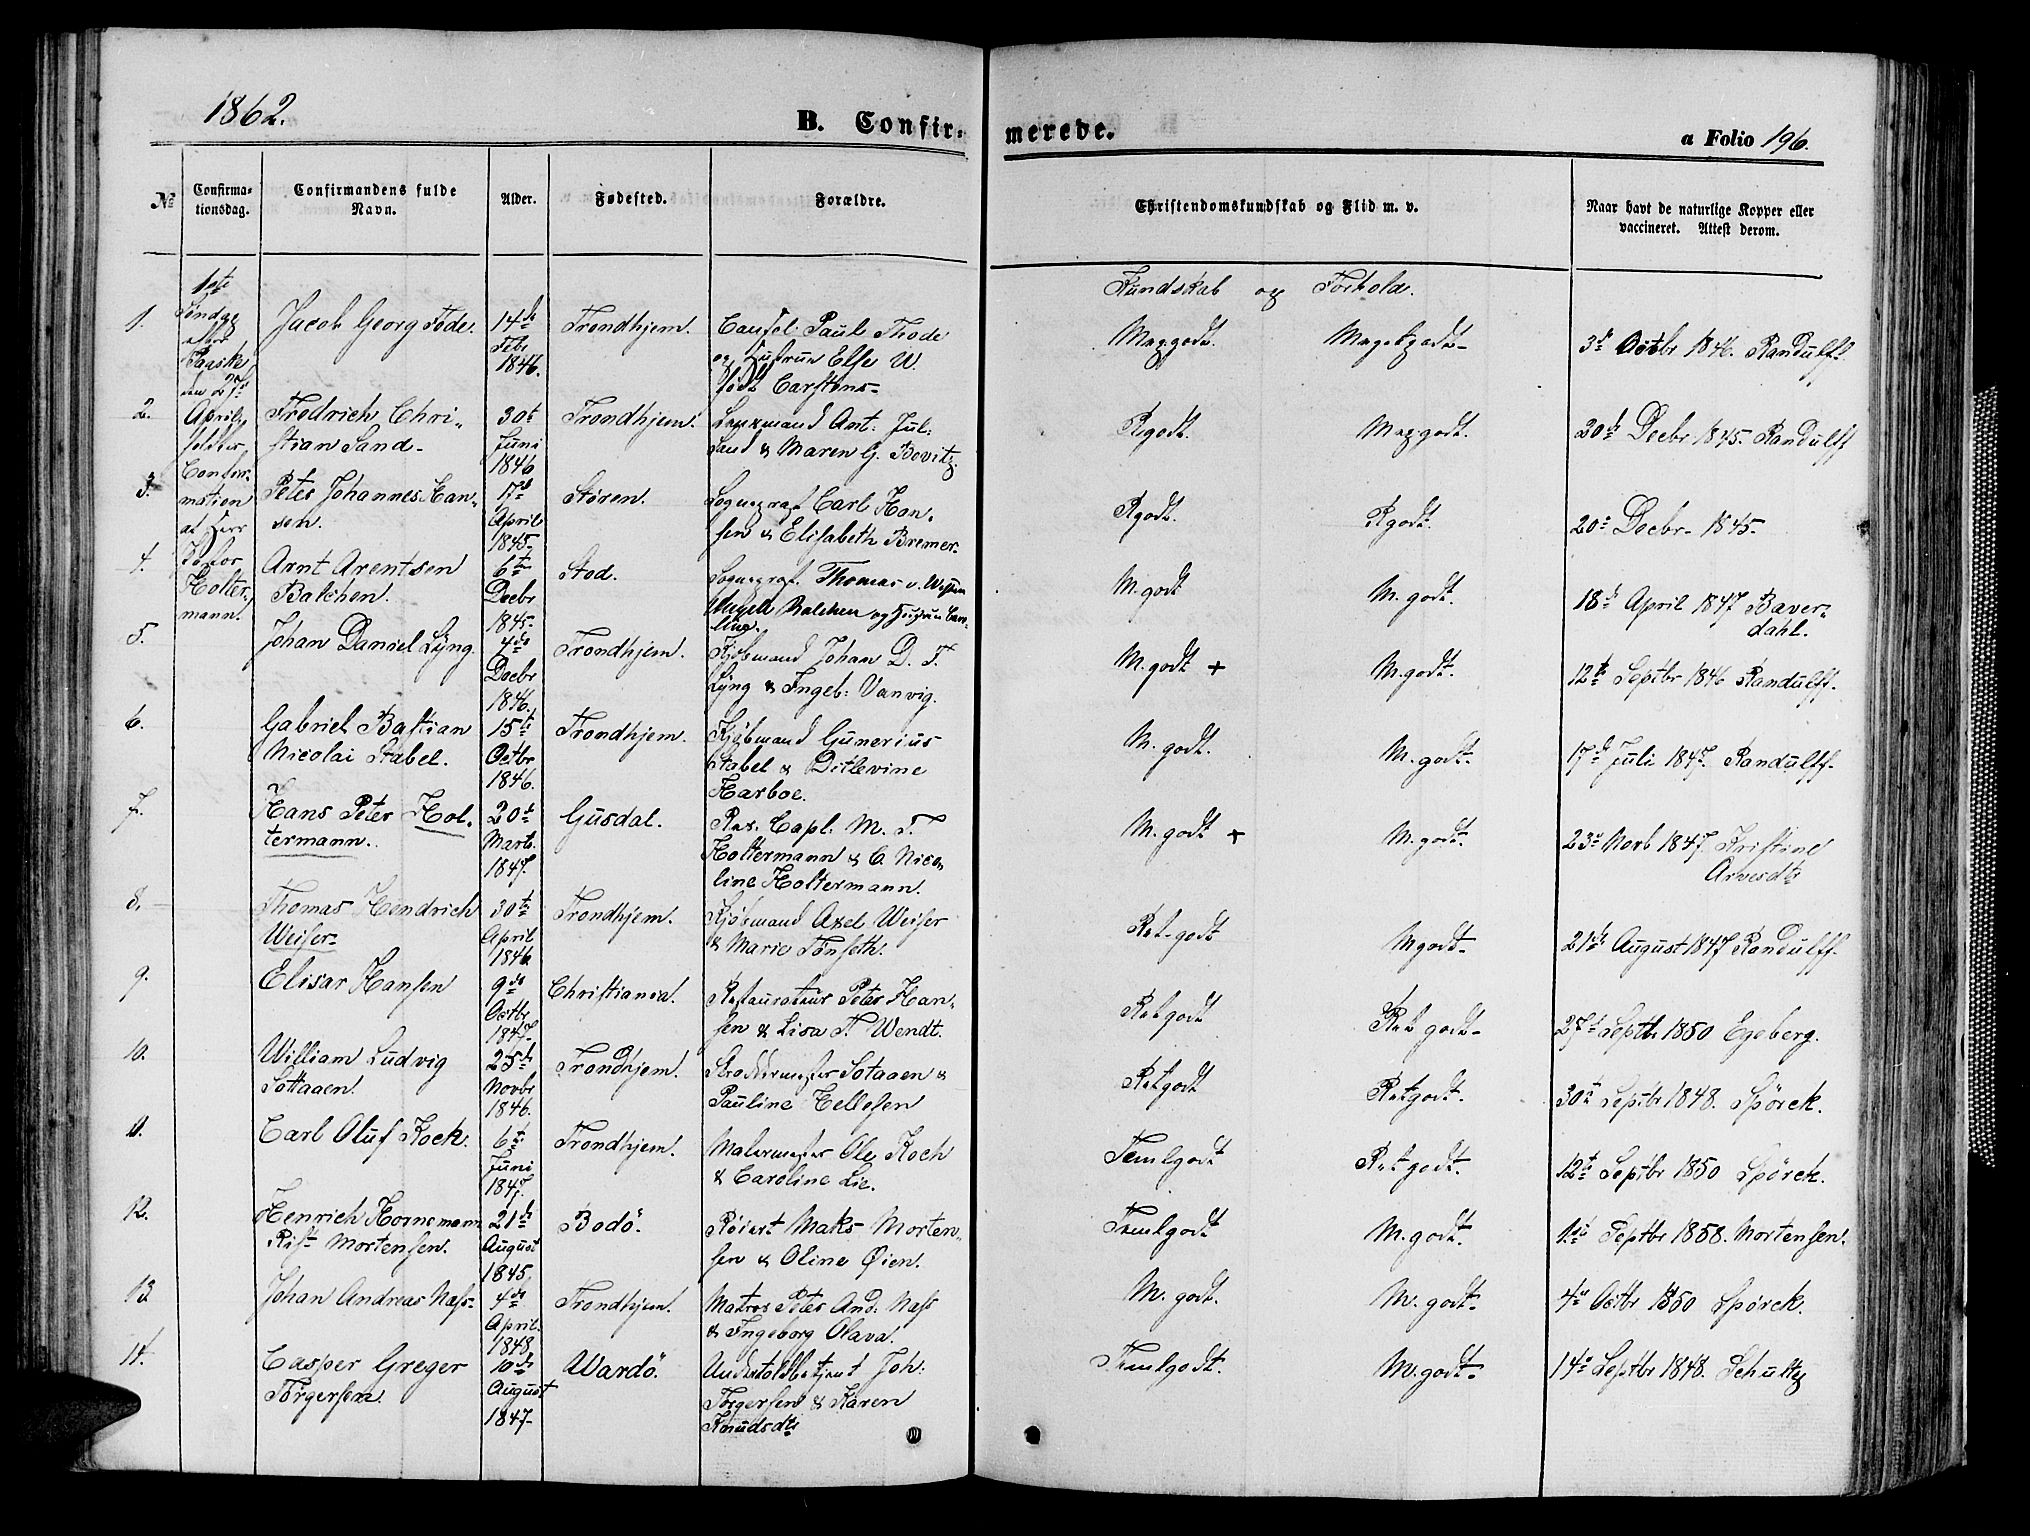 1862.
B. Confir-
merede.
a Folio 196.
№
Confirma-
tionsdag.
Confirmandens fulde
Navn.
Alder.
Fødested.
Forældre.
Christendomskundskab og Flid m. v.
Naar havt de naturlige Kopper eller
vaccineret. Attest derom.
Kundskab og Forhold.
1ste
Søndag
efter
Paaske
den 27de
April
holdtes
Confir-
mation
af Herr
Pastor
Holter-
mann.
1.
Jacob Georg Tode.
14de
Febr
1846.
Trondhjem.
Consul Paul Thode
og Hustrue Else W.
født Carstens-
Meg. godt.
Meget godt-
3de Octbr 1846. Randulff.
2.
Fredrich Chri-
stian Sand-
30te
Juni
1846
Trondhjem.
Lensmand Ant: Jul:
Sand & Maren G. Bovitz.
R. godt.
Meg godt.
20de Decbr 1845. Randulff
3.
Peter Johannes Han-
sen.
17de
April
1845-
Støren.
Sogneprest Carl Han-
sen & Elisabeth Bremer.
R. godt.
R. godt.
20de Decbr- 1845-
4.
Arnt Arentsen
Balchen.
6te
Decbr
1845-
Stod.
Sognepræst Thomas v. Westen
Balchen og Hustrue
M. godt
M. godt.
18de April 1847 Baver-
dahl.
5.
Johan Daniel Lyng
4de
Decbr
1846.
Trondhjem.
Kjøbmand Johan D. F.
Lyng & Ingeb: Vanvig.
M. godt +
M. godt.
12te Septbr 1846 Randulff.
6.
Gabriel Bastian
Nicolai Stabel.
15te
Octbr
1846.
Trondhjem.
Kjøbmand Gunerius
Stabel & Ditlevine
Harboe.
M. godt.
M. godt-
17de Juli 1847. Randulff.
7.
Hans Peter Hol-
termann.
20de
Marts.
1847.
Gusdal.
Res. Capl. M. T.
Holtermann & C. Nico-
line Holtermann.
M. godt +
M. godt.
23de Novb 1847. Kristine
Arvesdtr
8.
Thomas Hendrich
Weiser-
30te
April
1846
Trondhjem.
Kjøbmand Axel Weiser
& Marie Tønseth.
Ret-godt
M godt-
21de August 1847 Randulff.
9.
Elisar Hansen
9de
Octbr
1847.
Christiania.
Restaurateur Peter Han-
sen & Lisa T. Wendt.
Ret godt
Ret godt-
27de Septbr 1850 Egeberg.
10.
William Ludvig
Sottaaen.
25de
Novbr
1846.
Trondhjem.
Skreddermester Sotaaen &
Pauline Tellefsen
Ret godt
Ret godt.
30te Septbr 1848. Spørck.
11.
Carl Oluf Kock.
6te
Juni
1847.
Trondhjem.
Malermester Ole Koch
& Caroline Lie.
Temlgodt
Ret godt.
12te Septbr 1850 Spørck.
12.
Henrich Hornemann
Rist Mortensen.
21de
August
1845.
Bodö.
Reiert Maks Morten-
sen & Oline Øien.
Temlgodt
M. godt.
1ste Septbr 1858. Mortensen.
13
Johan Andreas Næss-
4de
April.
1848.
Trondhjem.
Matros Peter And. Næss
& Ingeborg Olava.
M. godt.
M. godt-
4de Octbr 1850 Spørck.
14.
Casper Greger
Torgersen.
10de
August
1847-
Wardö.
Undertoldbetjent Joh:
Torgersen & Karen
Knudsdtr
Temlgodt.
M. godt-
14de Septbr 1848. Schultz